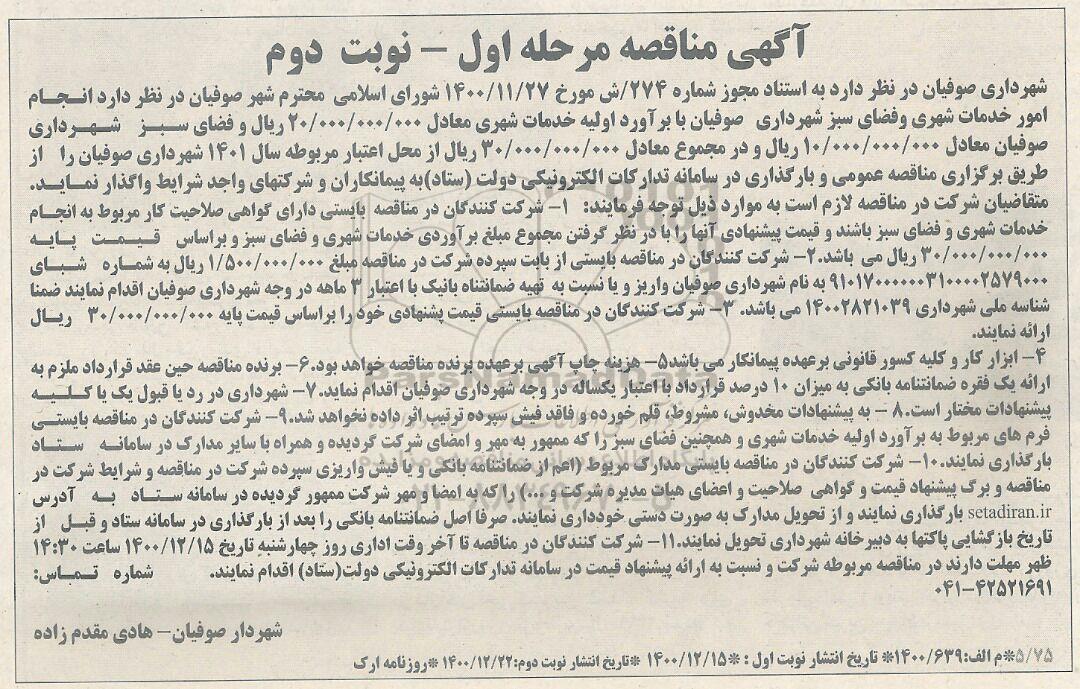 آگهی مناقصه مرحله اول – نوبت دوم
شهرداری صوفیان در نظر دارد به استناد مجوز شماره ۲۷۴/ش مورخ ۱۴۰۰/۱۱/۲۷ شورای اسلامی محترم شهر صوفیان در نظر دارد انجام
امور خدمات شهری وفضای سبز شهرداری صوفیان با برآورد اولیه خدمات شهری معادل ۲۰/۰۰۰/۰۰۰/۰۰۰ ریال و فضای سبز شهرداری
صوفیان معادل ۱۰/۰۰۰/۰۰۰/۰۰۰ ریال و در مجموع معادل ۳۰/۰۰۰/۰۰۰/۰۰۰ ریال از محل اعتبار مربوطه سال ۱۴۰۱ شهرداری صوفیان را از
طریق برگزاری مناقصه عمومی و بارگذاری در سامانه تدارکات الکترونیکی دولت (ستاد)به پیمانکاران و شرکتهای واجد شرایط واگذار نماید.
متقاضیان شرکت در مناقصه لازم است به موارد ذیل توجه فرمایند: ۱- شرکت کنندگان در مناقصه بایستی دارای گواهی صلاحیت کار مربوط به انجام
خدمات شهری و فضای سبز باشند و قیمت پیشنهادی آنها را با در نظر گرفتن مجموع مبلغ برآوردی خدمات شهری و فضای سبز و براساس قیمت پایه
۳۰/۰۰۰/۰۰۰/۰۰۰ ریال می باشد.۲- شرکت کنندگان در مناقصه بایستی از بابت سپرده شرکت در مناقصه مبلغ ۱/۵۰۰/۰۰۰/۰۰۰ ریال به شماره شبای
۹۱۰۱۷۰۰۰۰۰۰۰۳۱۰۰۰۰۲۵۷۹۰۰۰ به نام شهرداری صوفیان واریز و یا نسبت به تهیه ضمانتناه بانیک با اعتبار ۳ ماهه در وجه شهرداری صوفیان اقدام نمایند ضمنا
شناسه ملی شهرداری ۱۴۰۰۲۸۲۱۰۳۹ می باشد. ۳- شرکت کنندگان در مناقصه بایستی قیمت پشنهادی خود را براساس قیمت پایه ۳۰/۰۰۰/۰۰۰/۰۰۰ ریال
ارائه نمایند.
۴- ابزار کار و کلیه کسور قانونی برعهده پیمانکار می باشد۵- هزینه چاپ آگهی برعهده برنده مناقصه خواهد بود.۶- برنده مناقصه حین عقد قرارداد ملزم به
ارائه یک فقره ضمانتنامه بانکی به میزان ۱۰ درصد قرارداد با اعتبار یکساله در وجه شهرداری صوفیان اقدام نماید.۷- شهرداری در رد یا قبول یک یا کلیه
پیشنهادات مختار است.۸ - به پیشنهادات مخدوش، مشروط، قلم خورده و فاقد فیش سپرده ترتیب اثر داده نخواهد شد.۹- شرکت کنندگان در مناقصه بایستی
فرم های مربوط به برآورد اولیه خدمات شهری و همچنین فضای سبز را که ممهور به مهر و امضای شرکت گردیده و همراه با سایر مدارک در سامانه ستاد
بارگذاری نمایند.۱۰- شرکت کنندگان در مناقصه بایستی مدارک مربوط (اعم از ضمانتنامه بانکی و یا فیش واریزی سپرده شرکت در مناقصه و شرایط شرکت در
مناقصه و برگ پیشنهاد قیمت و گواهی صلاحیت و اعضای هیات مدیره شرکت و ...) را که به امضا و مهر شرکت ممهور گردیده در سامانه ستاد به آدرس
setadiran.ir بارگذاری نمایند و از تحویل مدارک به صورت دستی خودداری نمایند. صرفا اصل ضمانتنامه بانکی را بعد از بارگذاری در سامانه ستاد و قبل از
تاریخ بازگشایی پاکتها به دبیرخانه شهرداری تحویل نمایند.۱۱- شرکت کنندگان در مناقصه تا آخر وقت اداری روز چهارشنبه تاریخ ۱۴۰۰/۱۲/۱۵ ساعت ۱۴:۳۰
ظهر مهلت دارند در مناقصه مربوطه شرکت و نسبت به ارائه پیشنهاد قیمت در سامانه تدارکات الکترونیکی دولت(ستاد) اقدام نمایند. شماره تماس:
۰۴۱-۴۲۵۲۱۶۹۱
شهردار صوفیان- هادی مقدم زاده
۵/۷۵*م الف:۱۴۰۰/۶۳۹* تاریخ انتشار نوبت اول : *۱۴۰۰/۱۲/۱۵ *تاریخ انتشار نوبت دوم:۱۴۰۰/۱۲/۲۲ *روزنامه ارک